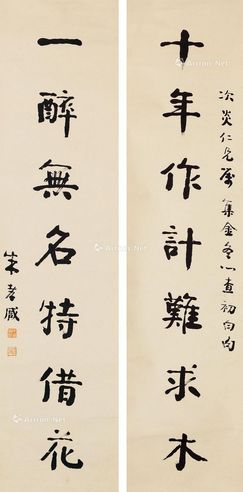 次炎仁兄属 集金冬心查初白句
十年作計難求木
一醉無名特借花
朱孝臧